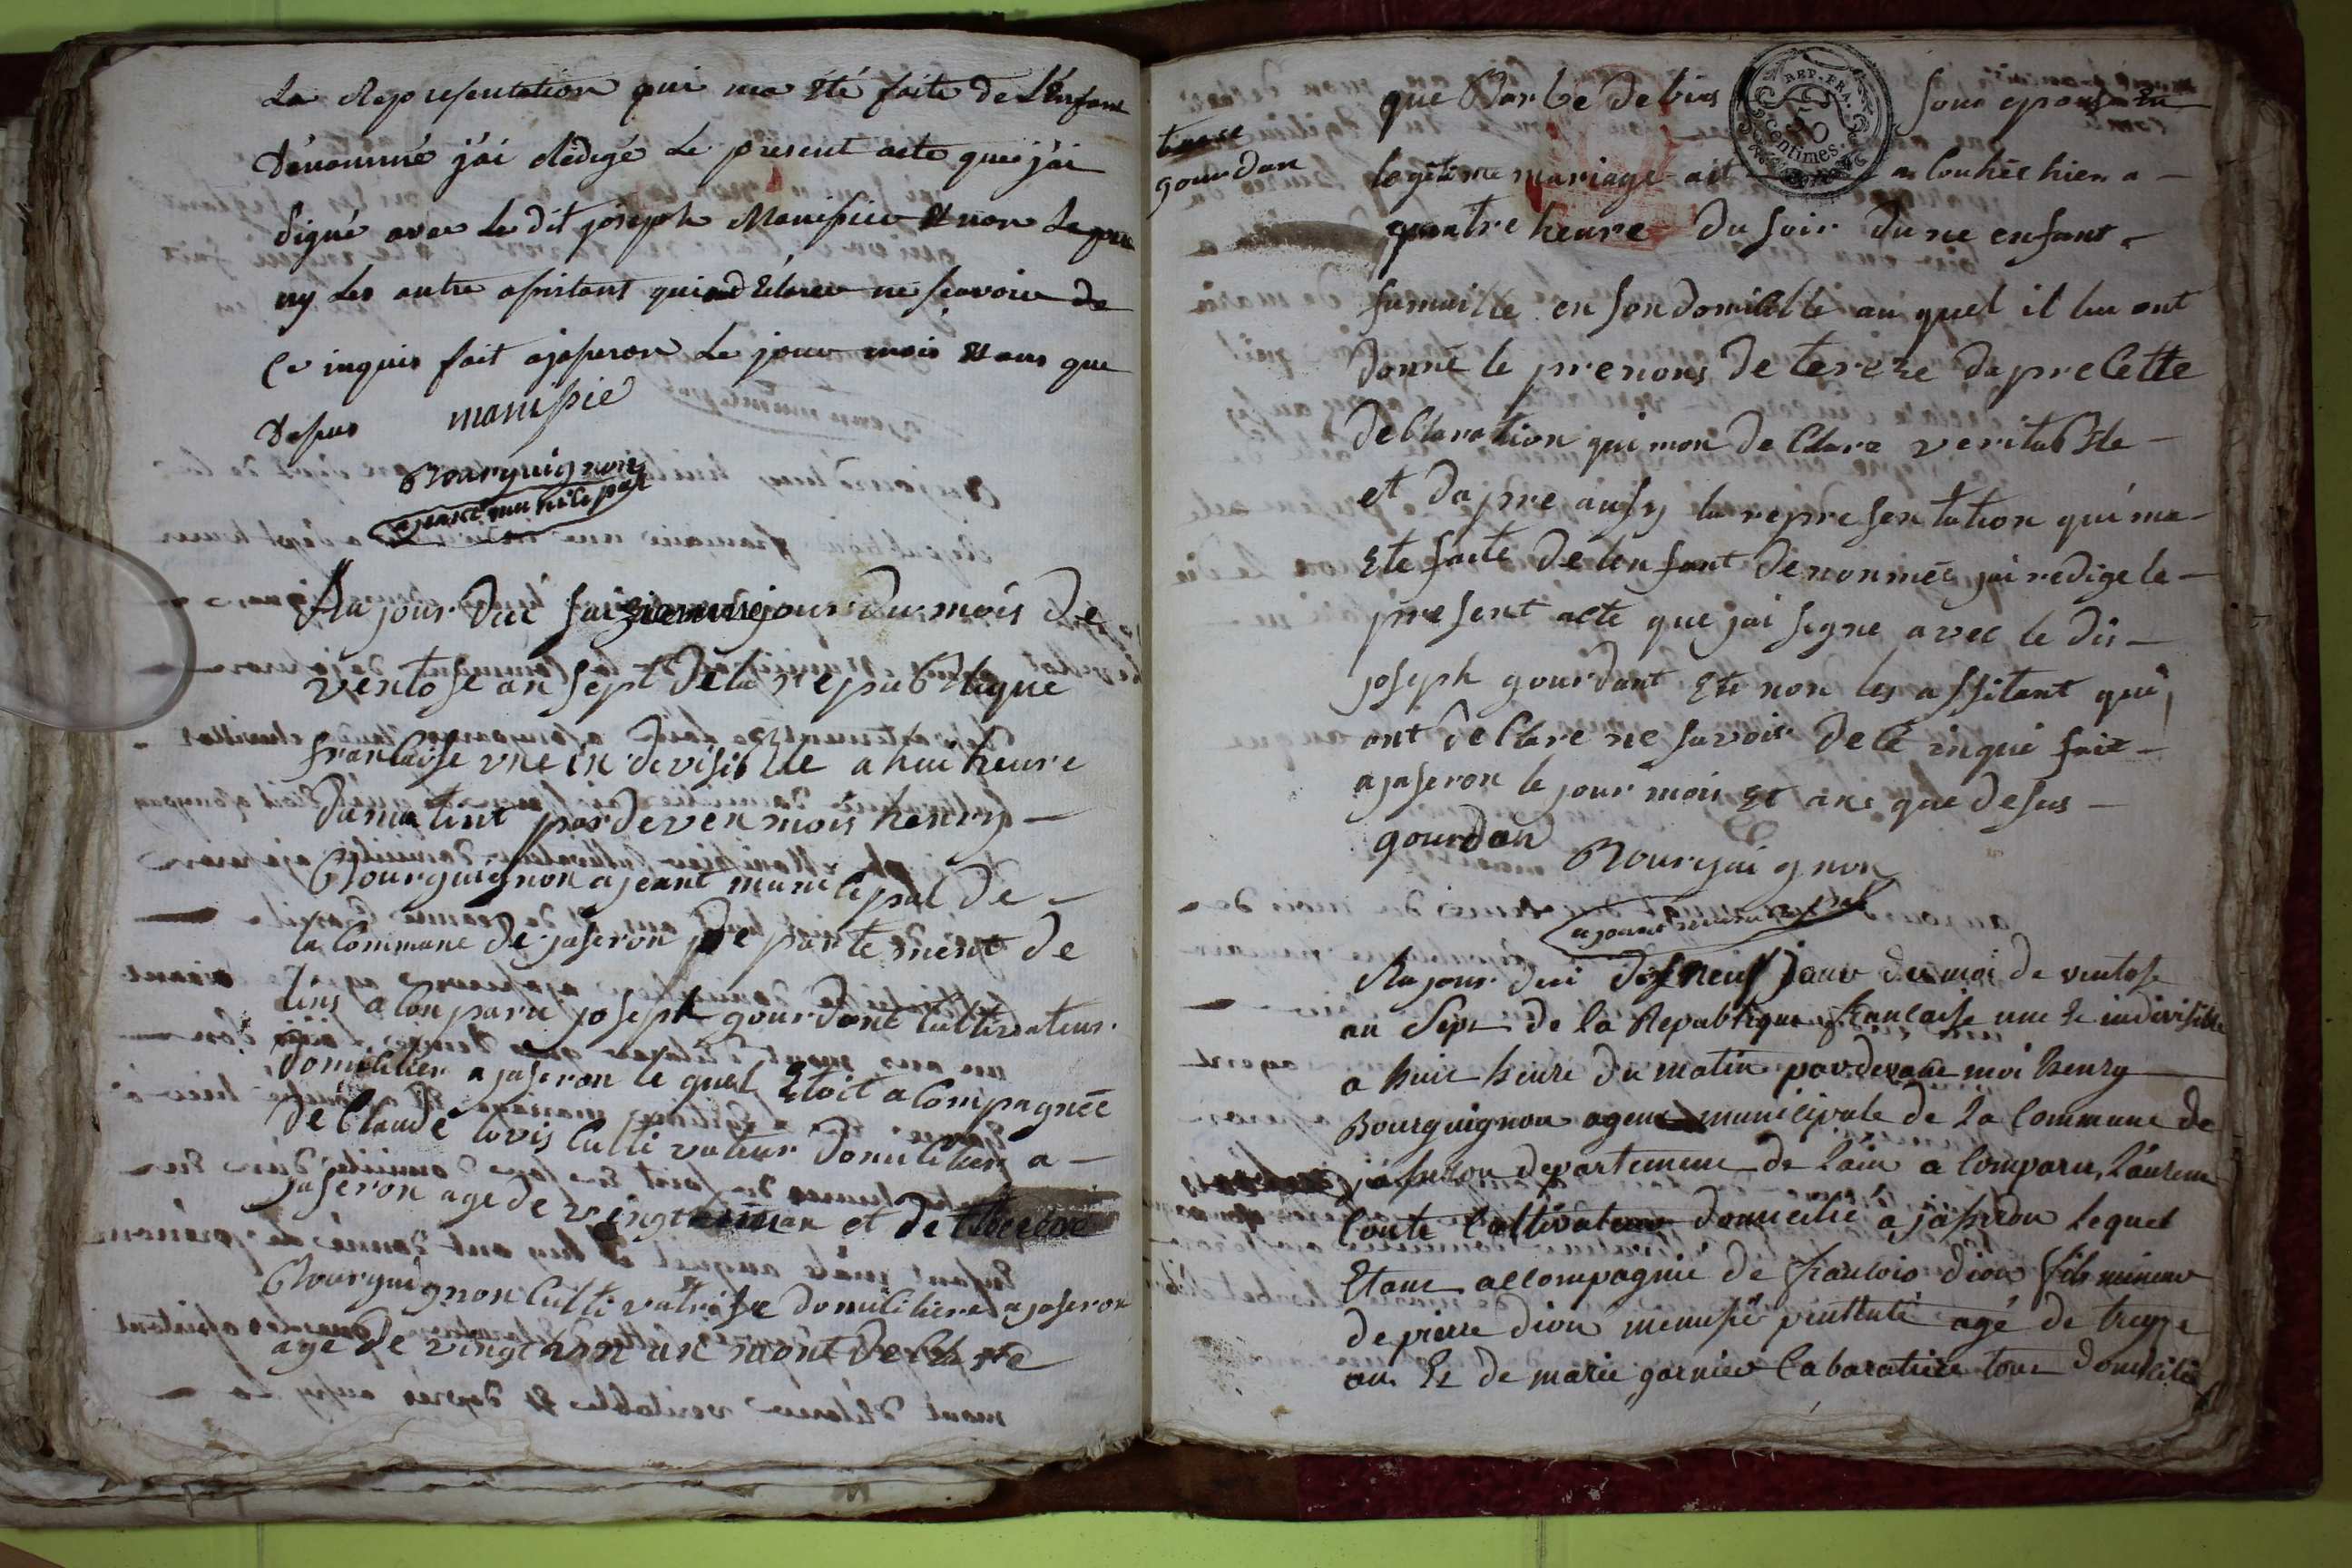 La Representation qui ma Eté faite de L'Enfant
Dénommé j'ai Rédigé Le présent acte que j'ai
Signé avec Le dit joseph Manissier Et non
ny Les autre assistant qui ont déclarer ne scavoir de
Ce inquis fait ajasseron Le jour mois Et ans que
Dessus manissié
Bourguignon
ajeant municipal
Au jour dui saizieme jour du mois de
ventose an sept de la republique
francaise une in devisible a hui heure
du matint pardeven mois henry
Bourguignon ajeant municipal de
la Commune de jaseron de parte ment de
lins a Conparu joseph gourdant Cultivateur
domicilier a jaseron le quel Etoit a Compagnée
de Claude lovis Culti vateur domicilier a
jaseron age de vingt an et de
Bourguignon Culti vatrise domiciliere a jaseron
age de vingt un an mont declare
terese
gourdan
que Barbe debias son epouse En
REP. FRA.
50
centimes.
legitime mariage ait a Couhée hier a
quatre heure du soir dune enfant
fumaille en son domicille au quel il lui ont
donné le prenons de tereze da pre Cette
declaration qui mon de Clare veritable
et da pre ausy la representation qui ma
Ete faite de lenfant denonmée jai redige le
present acte que jai signe avec le dis
joseph gourdant Ete non les assitant qui
ont de Clare ne savoir de Ce inqui fait
a jaseron le jour mois Et ans que desus
gourdan Bourguignon
ajeant municipal
Au jour dui dix neuf jour du moi de ventose
an Sept de la Republique francaise une Et indivisible
a huit heure du matin pardevant moi henry
Bourguignon agent municipale de La Commune de
jasseron departement de Lain a Comparu, Laurent
Conte Cultivateur domicilié a jasseron Lequel
Etant accompagnié de francois dion fils mineur
de pierre dion menusié agé de treize
ans Et de marie garnier Cabaratiere tous domicilié